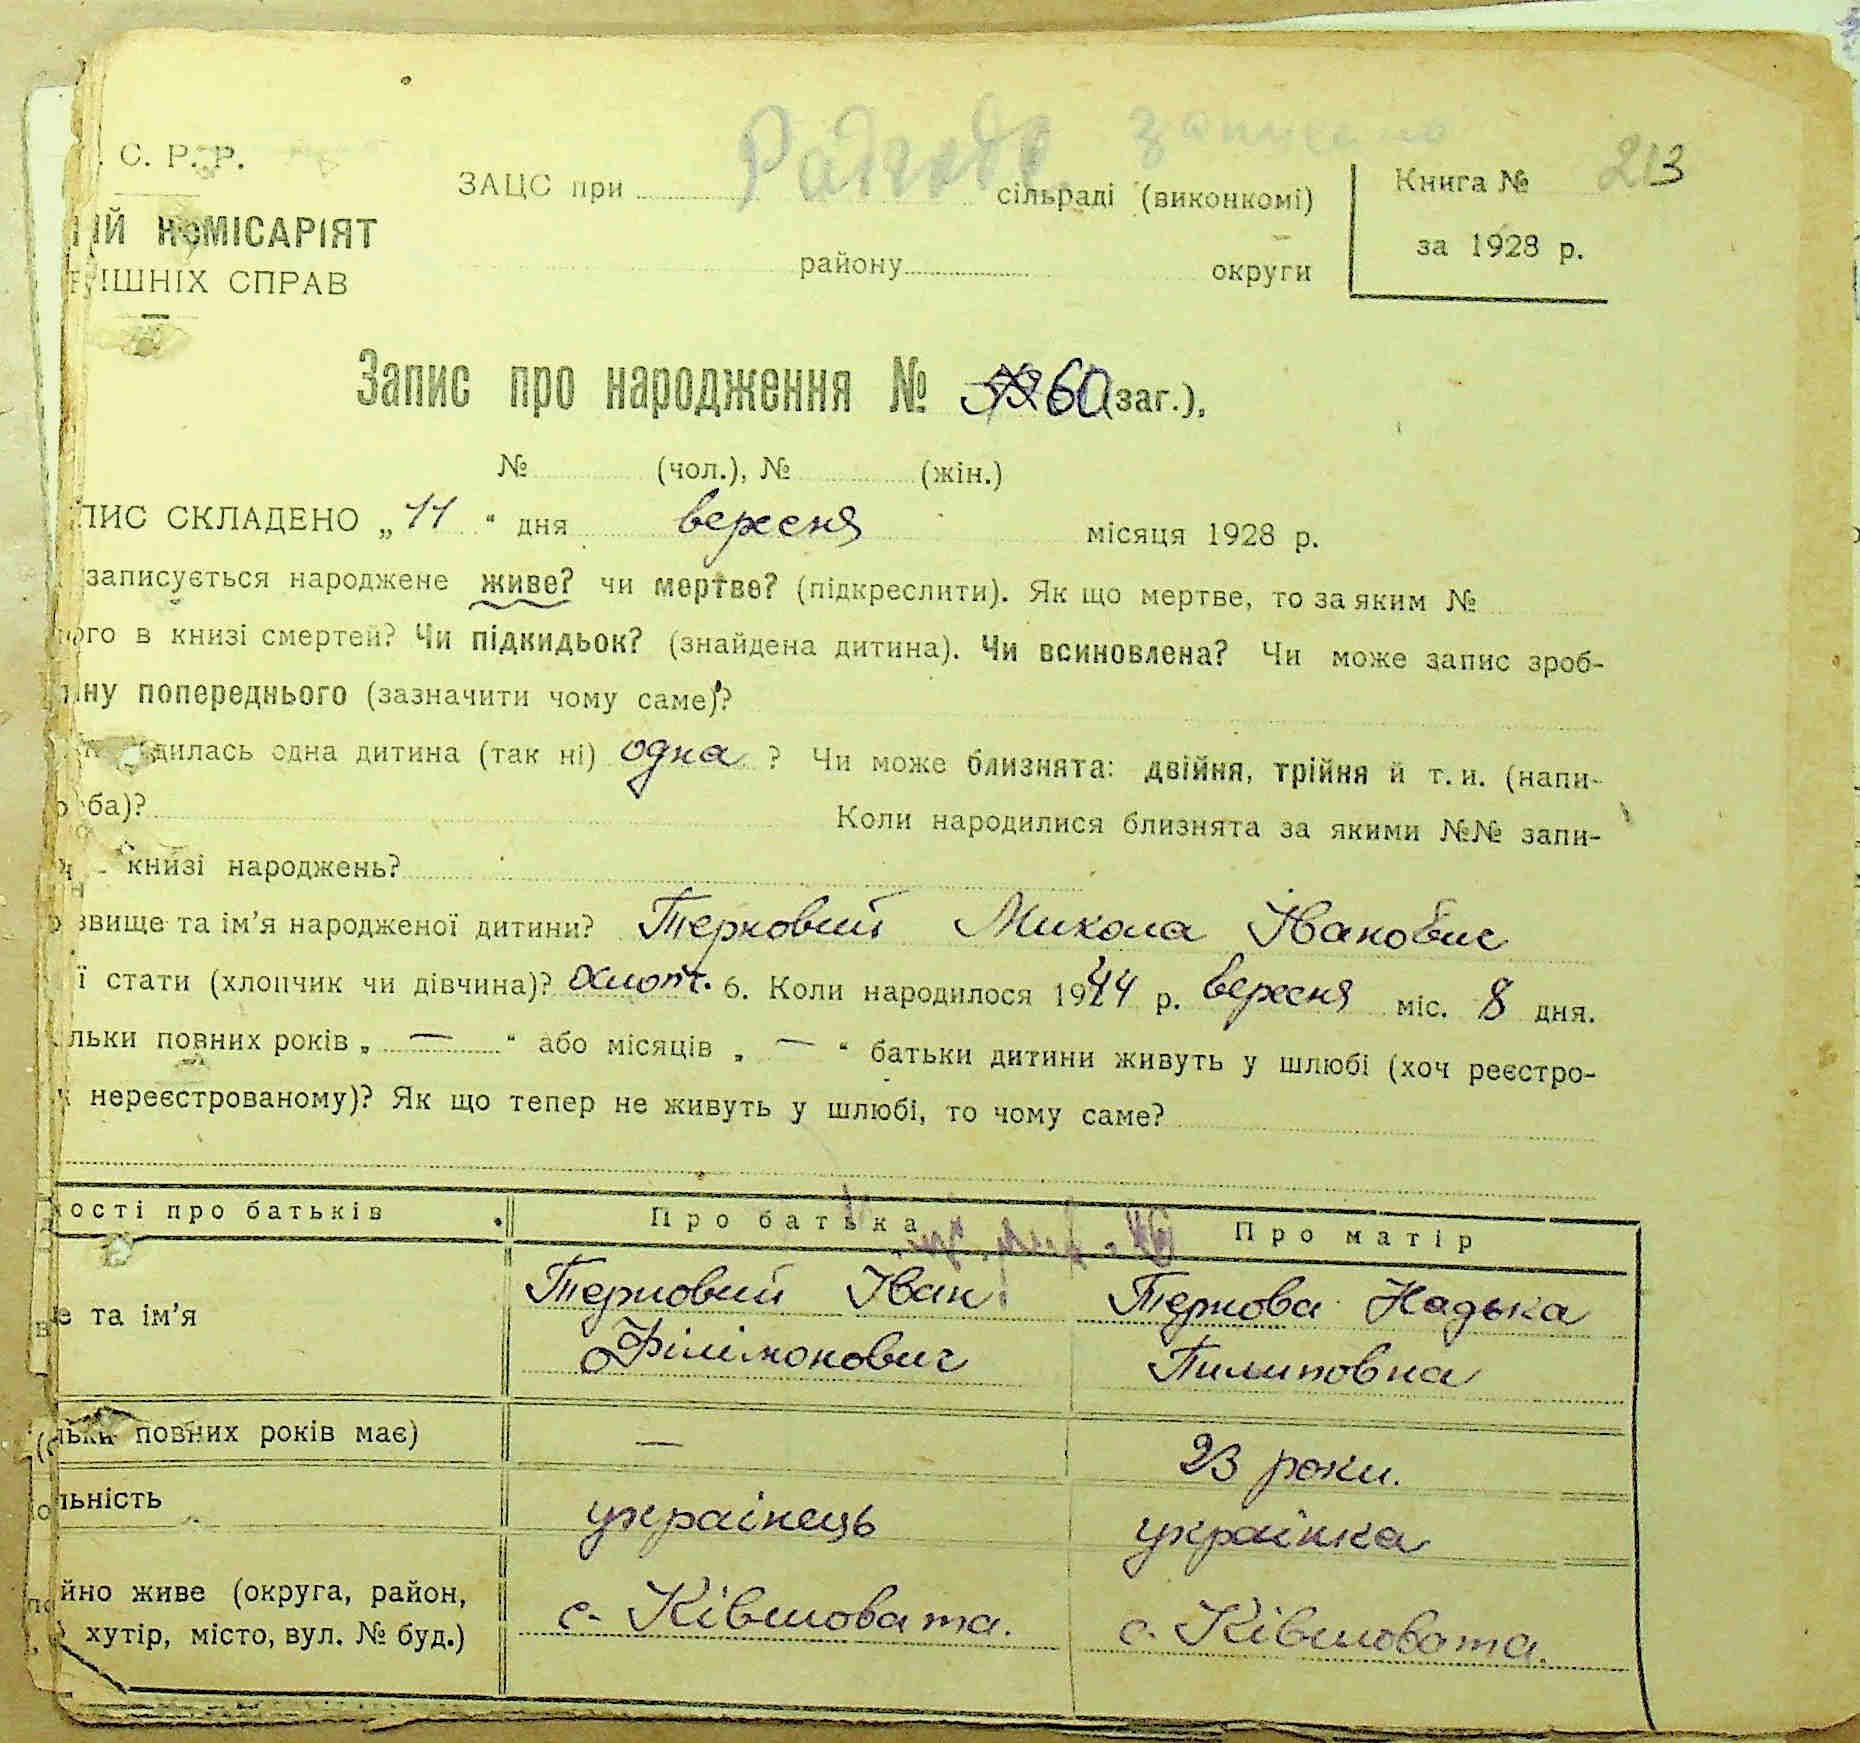 . С. Р. Р.
записано
213
ЗАЦС при сільраді (виконкомі)
Книга №
ИЙ КОМІСАРІЯТ
за 1928 р.
району округи
РІШНІХ СПРАВ
Запис про народження № 60 (заг.),
№ (чол.), № (жін.)
ПИС СКЛАДЕНО „11“ дня вересня місяця 1928 р.
записується народжене живе? чи мертве? (підкреслити). Як що мертве, то за яким №
ого в книзі смертей? Чи підкидьок? (знайдена дитина). Чи всиновлена? Чи може запис зроб-
іну попереднього (зазначити чому саме)?
дилась одна дитина (так ні) одна ? Чи може близнята: двійня, трійня й т. и. (напи-
ба)? Коли народилися близнята за якими №№ запи-
книзі народжень?
звище та ім’я народженої дитини? Терновий Микола Іванович
ї стати (хлопчик чи дівчина)? хлопч. 6. Коли народилося 1944 р. вересня міс. 8 дня.
льки повних років „ — “ або місяців „ — “ батьки дитини живуть у шлюбі (хоч реєстро-
нереєстрованому)? Як що тепер не живуть у шлюбі, то чому саме?
ості про батьків Про батька Про матір
е та ім’я Терновий Іван Тернова Надька
Філімонович Пилиповна
льки повних років має) — 23 роки.
льність українець українка
йно живе (округа, район, с. Ківшовата. с. Ківшовата.
хутір, місто, вул. № буд.)